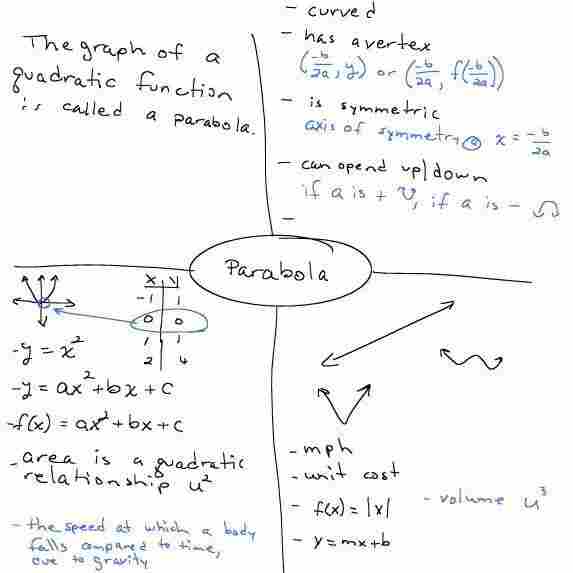 The graph of a
quadratic function
is called a parabola.
- curved
- has a vertex
(-b/2a, y) or (-b/2a, f(-b/2a))
- is symmetric
axis of symmetry @ x = -b/2a
- can opend up/down
if a is + , if a is -
-
Parabola
x y
-1 1
0 0
1 1
2 4
- y = x²
- y = ax² + bx + c
- f(x) = ax² + bx + c
- area is a quadratic
relationship u²
- the speed at which a body
falls compared to time,
due to gravity
- mph
- unit cost
- f(x) = |x|
- y = mx + b
- volume u³